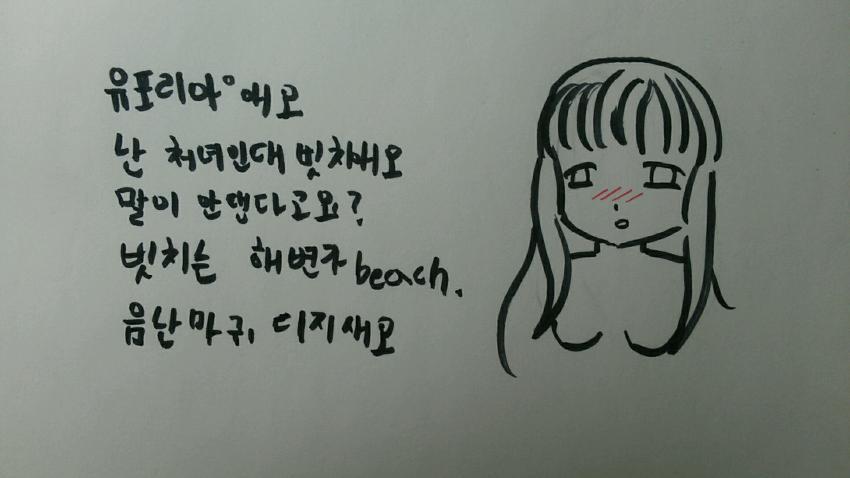 유포리아°에오
난 처녀인대 빗차새오
말이 안댄다고요?
빗치는 해변가 beach.
음난마귀, 디지새오